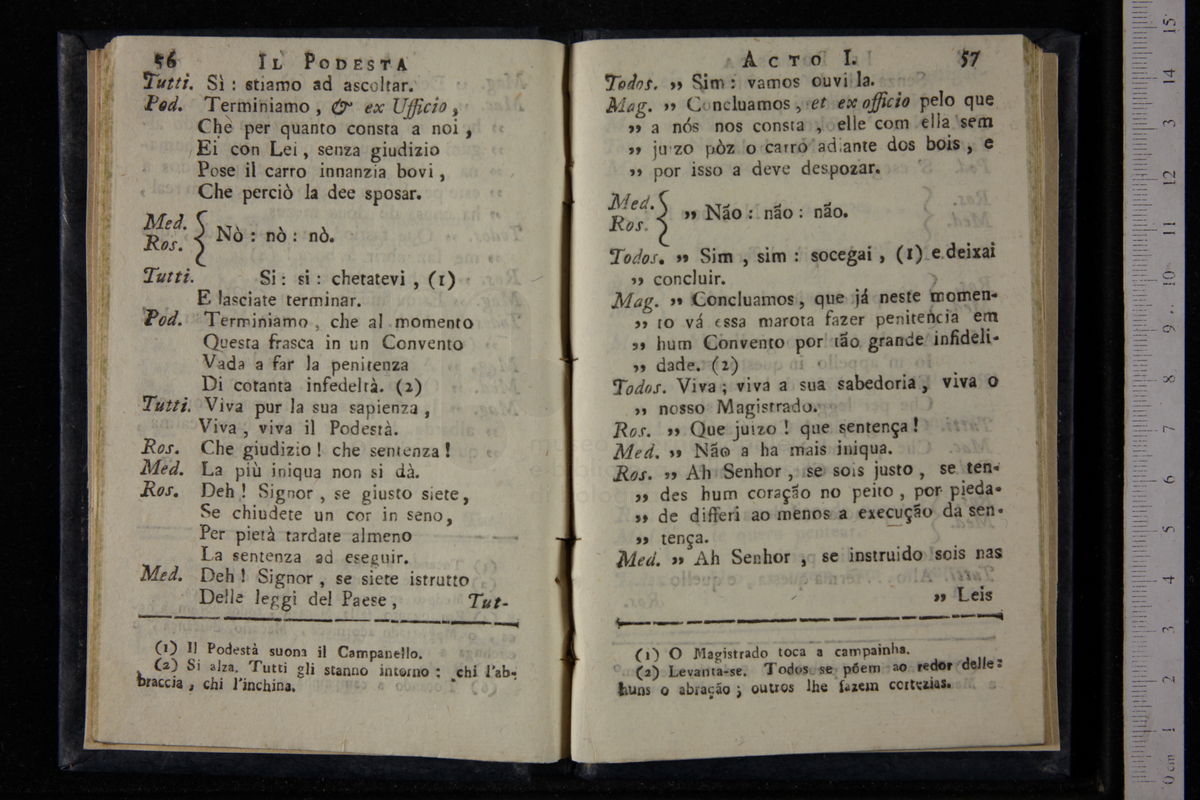 56 IL PODESTA
Tutti. Sì : stiamo ad ascoltar.
Pod. Terminiamo , & ex Ufficio ,
Chè per quanto consta a noi ,
Ei con Lei , senza giudizio
Pose il carro innanzia bovi ,
Che perciò la dee sposar.
Med.
Ros. } Nò : nò : nò.
Tutti. Si : si : chetatevi , (1)
E lasciate terminar.
Pod. Terminiamo , che al momento
Questa frasca in un Convento
Vada a far la penitenza
Di cotanta infedeltà. (2)
Tutti. Viva pur la sua sapienza ,
Viva , viva il Podestà.
Ros. Che giudizio ! che sentenza !
Med. La più iniqua non si dà.
Ros. Deh ! Signor , se giusto siete,
Se chiudete un cor in seno,
Per pietà tardate almeno
La sentenza ad eseguir.
Med. Deh ! Signor , se siete istrutto
Delle leggi del Paese , Tut-
(1) Il Podestà suona il Campanello.
(2) Si alza. Tutti gli stanno intorno : chi l'ab-
braccia , chi l'inchina.
ACTO I. 57
Todos. ,, Sim : vamos ouvi la.
Mag. ,, Concluamos , et ex officio pelo que
,, a nós nos consta , elle com ella sem
,, juizo pòz o carro adiante dos bois , e
,, por isso a deve despozar.
Med.
Ros. } ,, Não : não : não.
Todos. ,, Sim , sim : socegai , (1) e deixai
,, concluir.
Mag. ,, Concluamos , que já neste momen-
,, to vá essa marota fazer penitencia em
,, hum Convento por tão grande infideli-
,, dade. (2)
Todos. Viva ; viva a sua sabedoria , viva o
,, nosso Magistrado.
Ros. ,, Que juizo ! que sentença !
Med. ,, Não a ha mais iniqua.
Ros. ,, Ah Senhor , se sois justo , se ten-
,, des hum coração no peito , por pieda-
,, de differi ao menos a execução da sen-
,, tença.
Med. ,, Ah Senhor , se instruido sois nas
,, Leis
(1) O Magistrado toca a campainha.
(2) Levanta-se. Todos se põem ao redor delle :
huns o abração ; outros lhe fazem cortezias.
0 cm 1 2 3 4 5 6 7 8 9 10 11 12 13 14 15